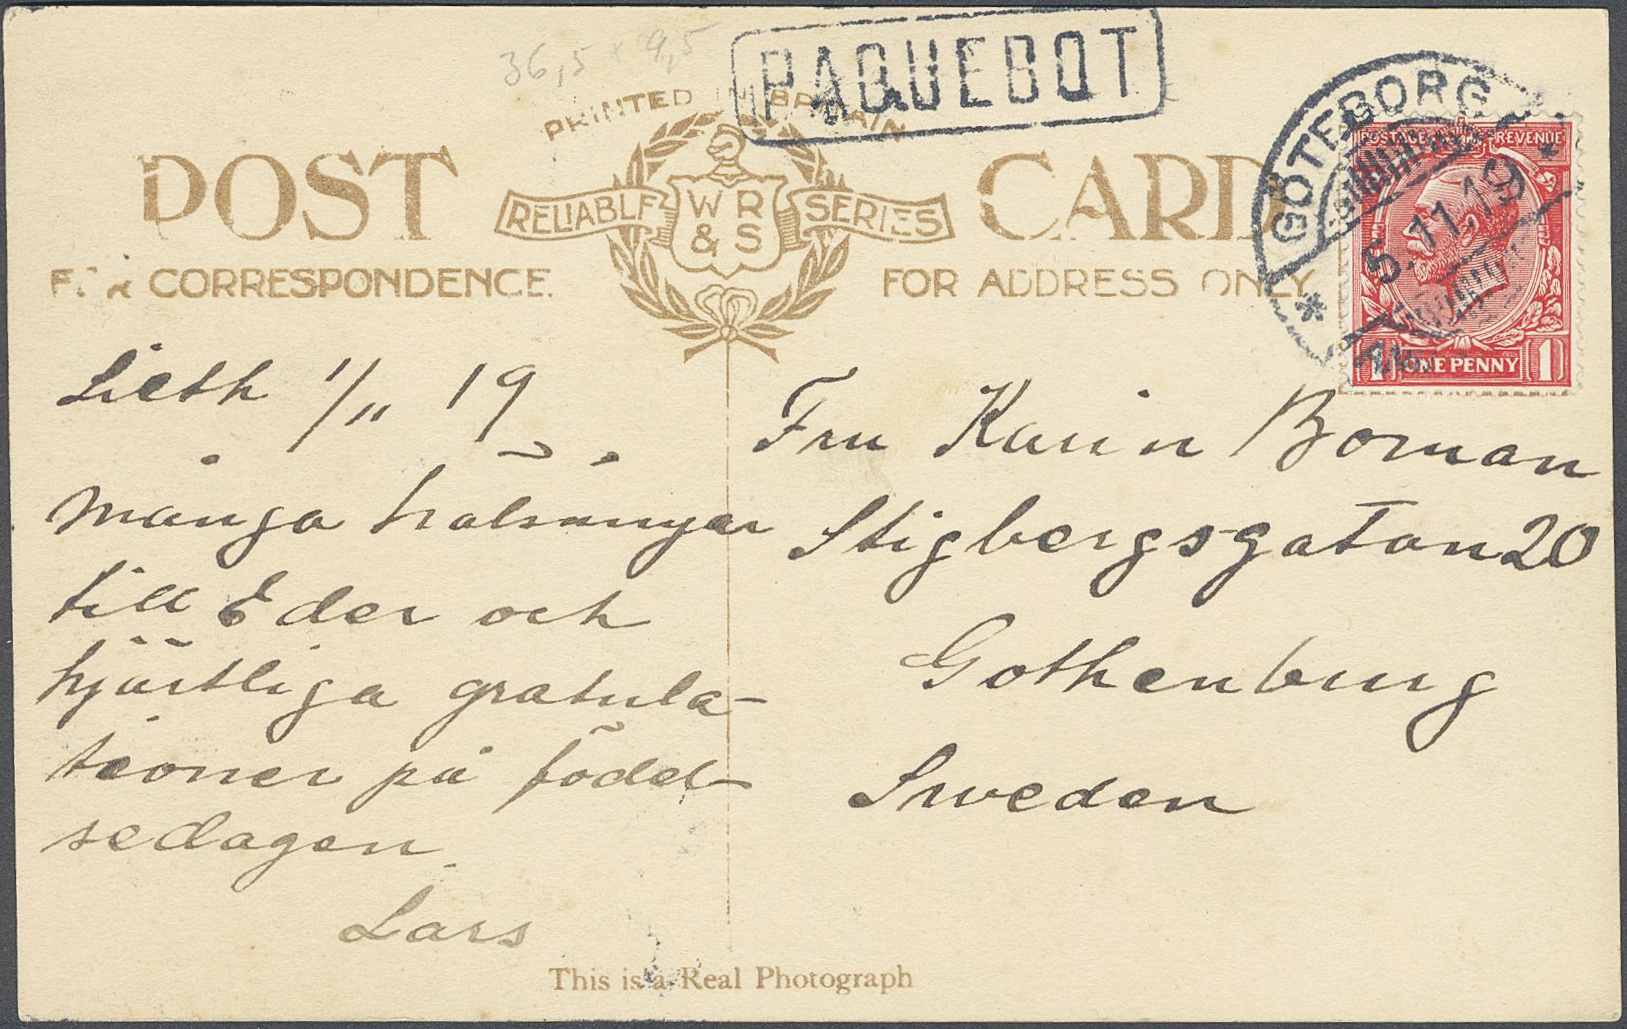 36,5 + 9,5
PAQUEBOT
PRINTED IN BRITAIN
POST CARD
RELIABLE WR & S SERIES
FOR CORRESPONDENCE.
FOR ADDRESS ONLY
GÖTEBORG
5.11.19
POSTAGE REVENUE
1 ONE PENNY 1
Lieth 1/11 19
Många hälsningar
till Eder och
hjärtliga gratula-
tioner på födel-
sedagen.
Lars
Fru Karin Boman
Stigbergsgatan 20
Gothenburg
Sweden
This is a Real Photograph